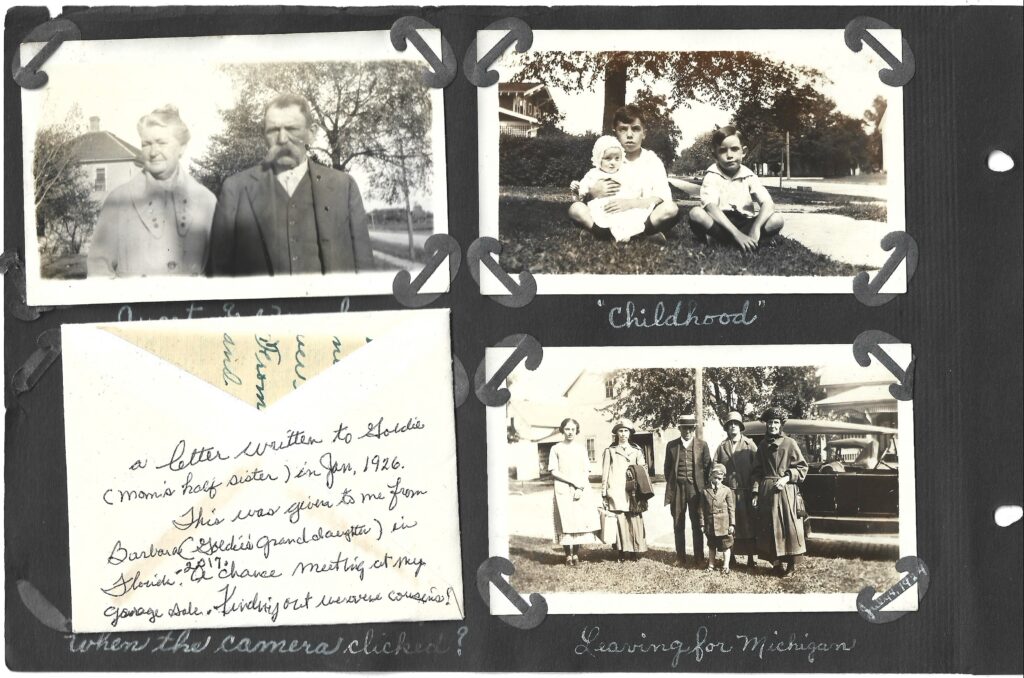 Aunt
"Childhood"
From
and
a letter written to Goldie
(Mom's half sister) in Jan, 1926.
This was given to me from
Barbara (Goldie's granddaughter) in
2017.
Florida. A chance meeting at my
garage sale. Finding out we were cousins!
When the camera clicked?
Leaving for Michigan